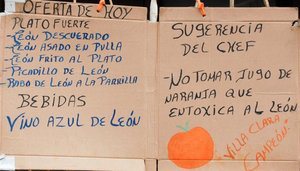 OFERTA DE HOY
PLATO FUERTE
- LEÓN DESCUERADO
- LEÓN ASADO EN PULLA
- LEÓN FRITO AL PLATO
- PICADILLO DE LEÓN
- RABO DE LEÓN A LA PARRILLA
BEBIDAS
VINO AZUL DE LEÓN
SUGERENCIA
DEL CHEF
- NO TOMAR JUGO DE
NARANJA QUE
ENTOXICA AL LEÓN
VILLA CLARA
CAMPEÓN